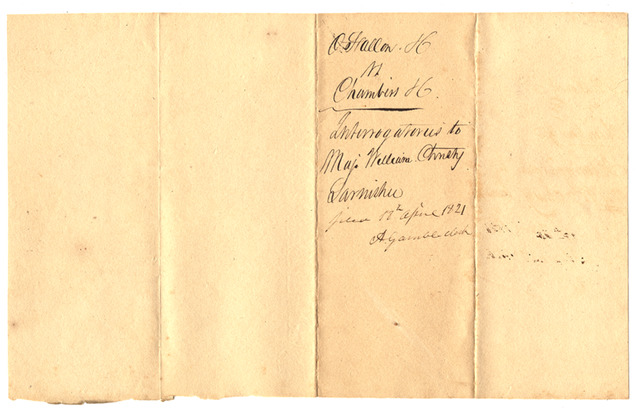 O'Fallon &C
vs
Chambers &C.
Interrogatories to
Maj. William Christy
Garnishee
filed 18th April 1821
A Gamble clk